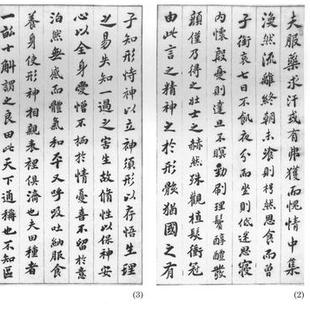 夫服藥求汗或有弗獲而愧情中集
渙然流離終朝未飡則枵然思食而曾
子銜哀七日不飢夜分而坐則低迷思寢
內懷殷憂則達旦不瞑勁刷理鬢醇醴發
顏僅乃得之壯士之赫然殊觀植髮衝冠
由此言之精神之於形骸猶國之有
(2)
子知形恃神以立神須形以存悟生理
之易失知一過之害生故脩性以保神安
心以全身愛憎不棲於情憂喜不留於意
泊然無感而體氣和平又呼吸吐納服食
養身使形神相親表裡俱濟也夫田種者
一畝十斛謂之良田此天下通稱也不知區
(3)